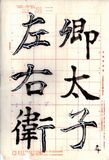 卿太子
左右衛